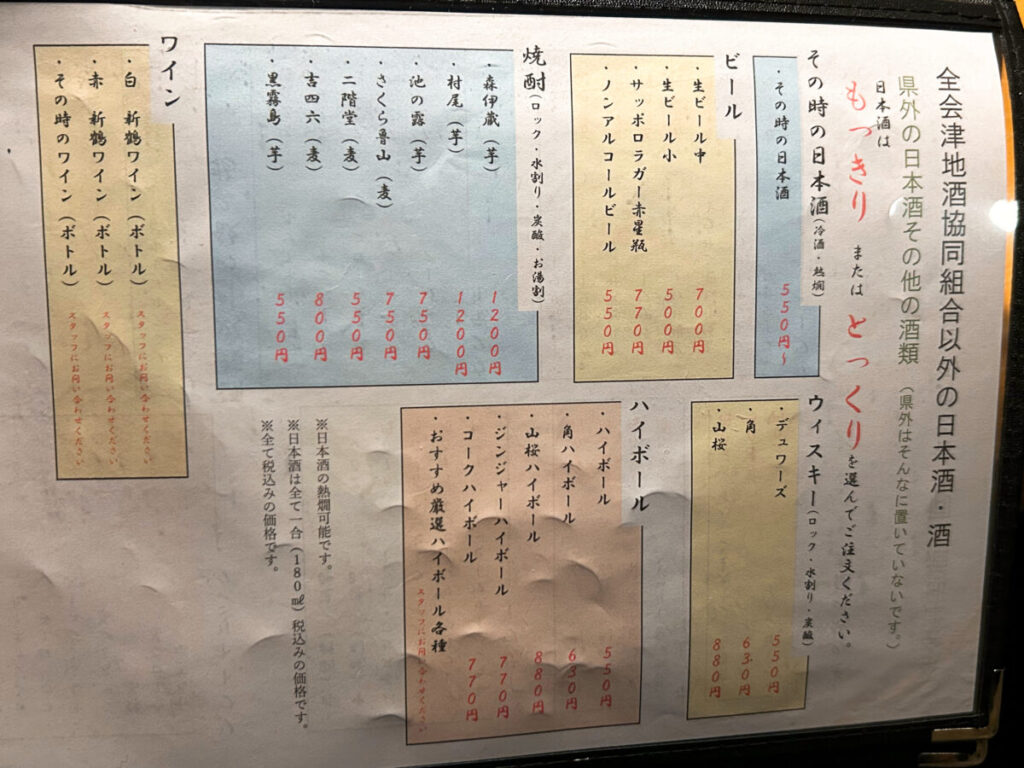 全会津地酒協同組合以外の日本酒・酒
県外の日本酒その他の酒類（県外はそんなに置いていないです。）
日本酒は
もっきり または とっくりを選んでご注文ください。
その時の日本酒（冷酒・熱燗）
・その時の日本酒 550円～
ビール
・生ビール中 700円
・生ビール小 500円
・サッポロラガー赤星瓶 770円
・ノンアルコールビール 550円
焼酎（ロック・水割り・炭酸・お湯割）
・森伊蔵（芋） 1200円
・村尾（芋） 1200円
・池の露（芋） 750円
・さくら魯山（麦） 750円
・二階堂（麦） 550円
・吉四六（麦） 800円
・黒霧島（芋） 550円
ワイン
・白 新鶴ワイン（ボトル） スタッフにお問い合わせください
・赤 新鶴ワイン（ボトル） スタッフにお問い合わせください
・その時のワイン（ボトル） スタッフにお問い合わせください
ウィスキー（ロック・水割り・炭酸）
・デュワーズ 550円
・角 630円
・山桜 880円
ハイボール
・ハイボール 550円
・角ハイボール 630円
・山桜ハイボール 880円
・ジンジャーハイボール 770円
・コークハイボール 770円
・おすすめ厳選ハイボール各種 スタッフにお問い合わせください
※日本酒の熱燗可能です。
※日本酒は全て一合（180㎖）税込みの価格です。
※全て税込みの価格です。